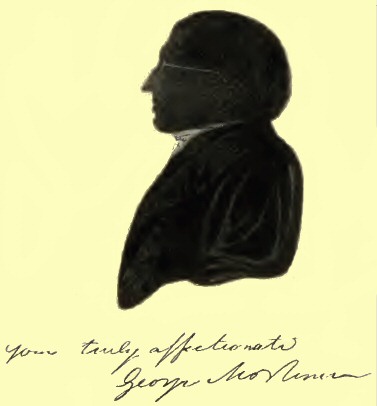 your truly affectionate
George Mortimer